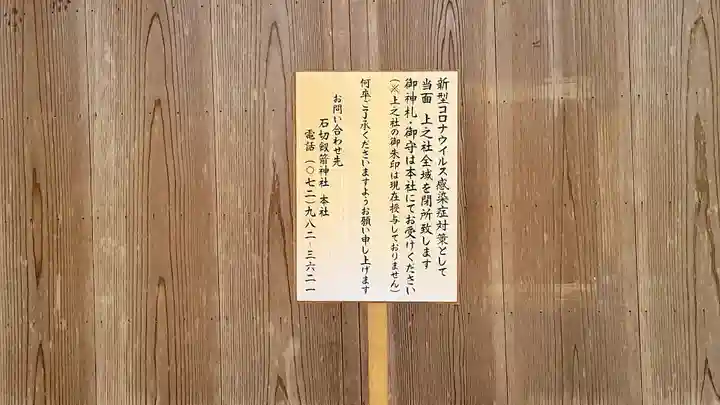 新型コロナウイルス感染症対策として
当面 上之社全域を閉所致します
御神札・御守は本社にてお受けください
(※上之社の御朱印は現在授与しておりません)
何卒ご了承くださいますようお願い申し上げます
お問い合わせ先
石切劔箭神社 本社
電話(〇七二)九八二-三六二一